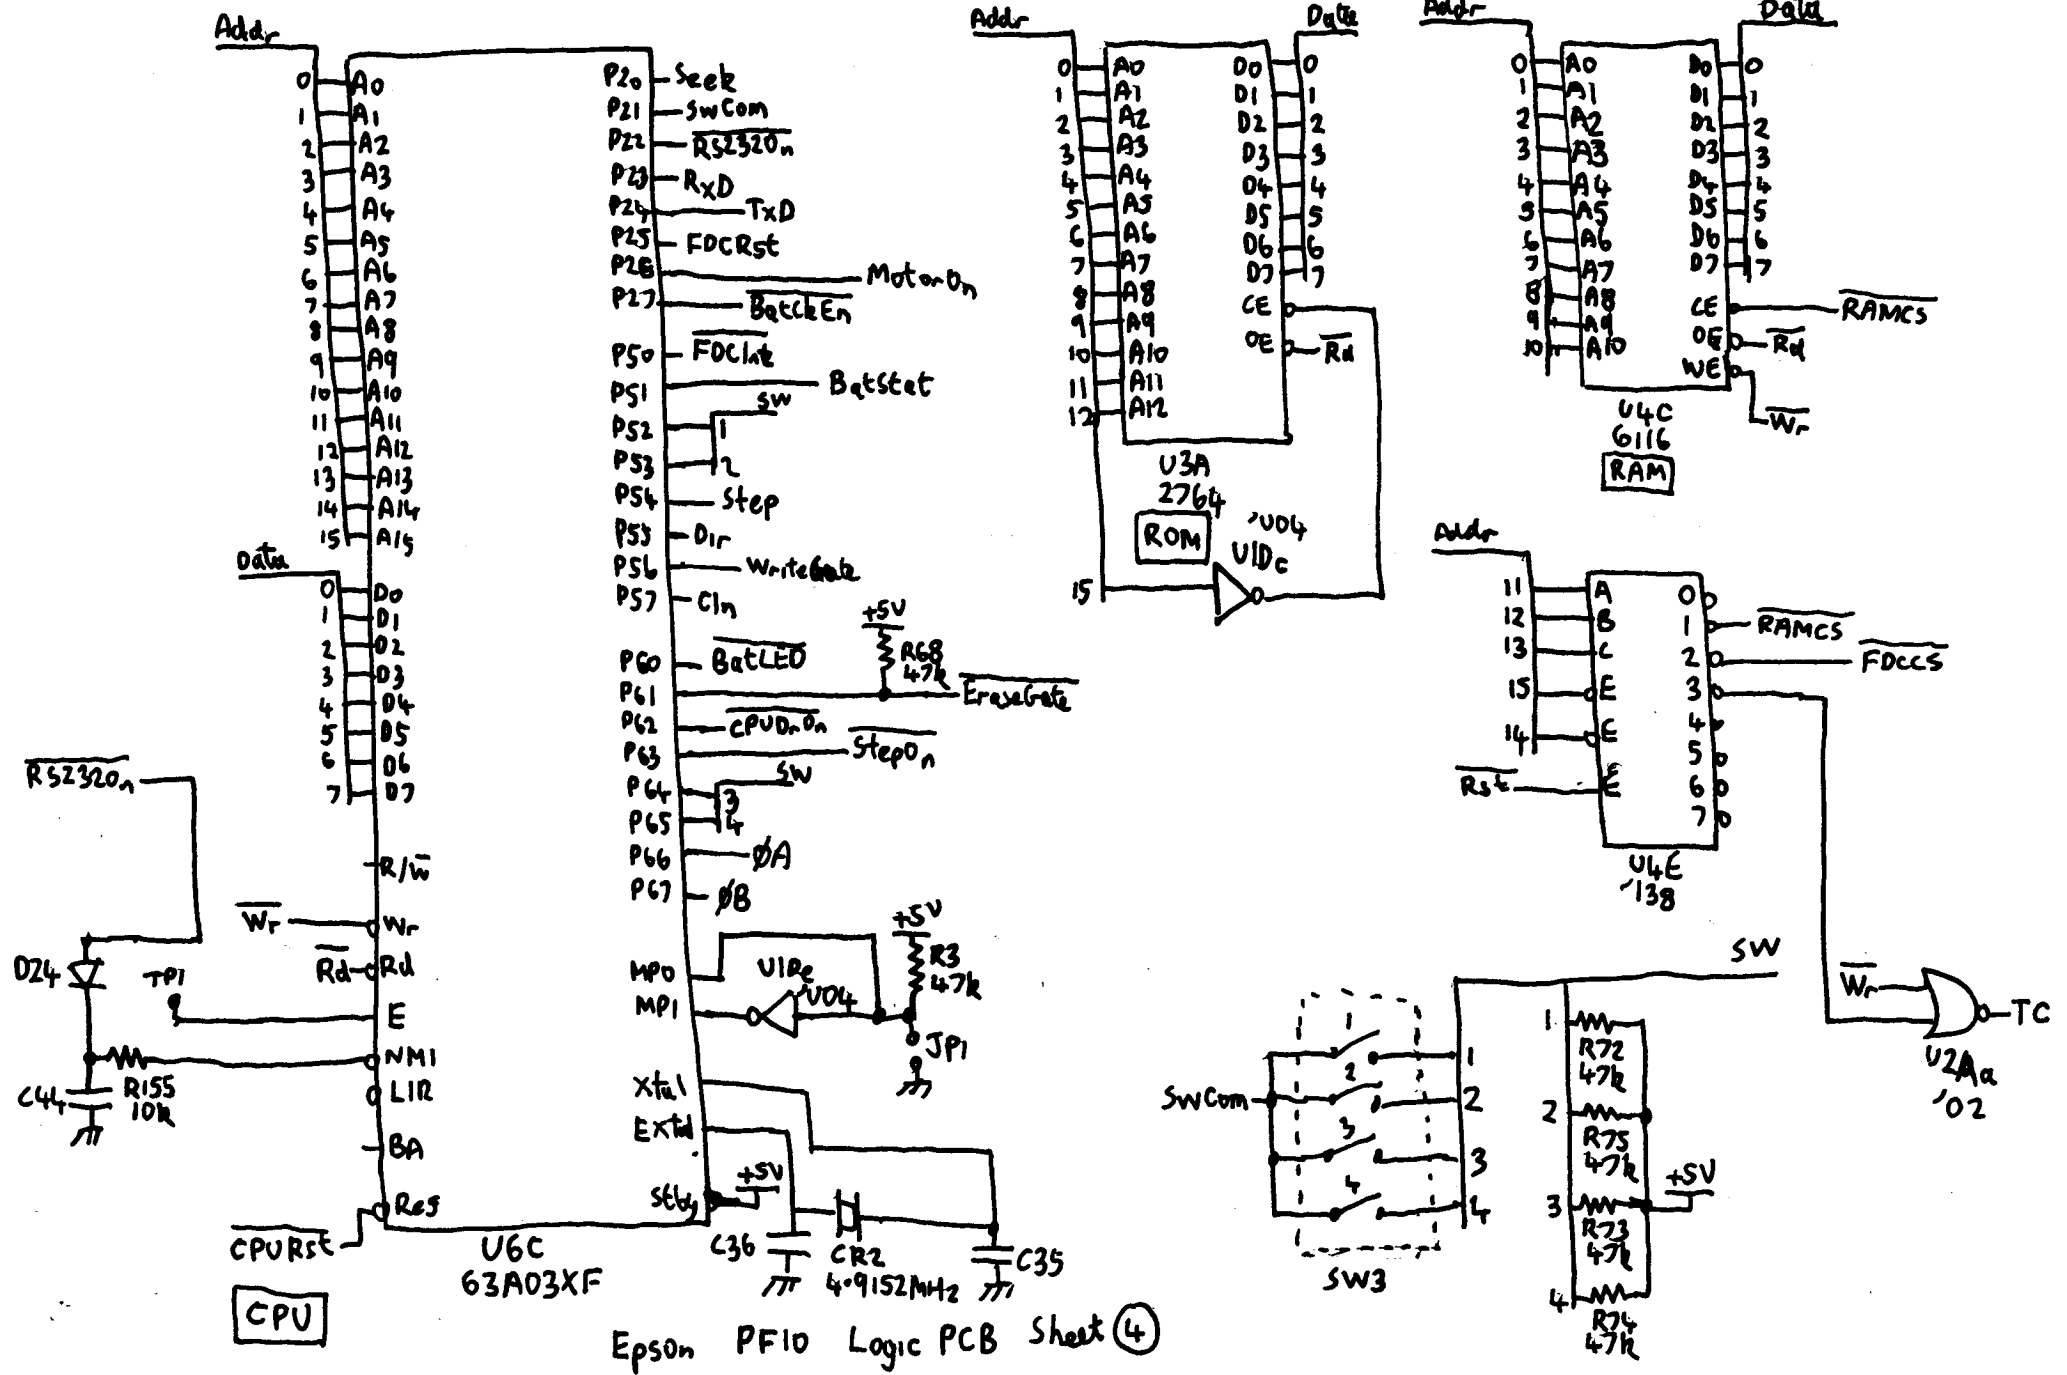 Addr
0 A0
1 A1
2 A2
3 A3
4 A4
5 A5
6 A6
7 A7
8 A8
9 A9
10 A10
11 A11
12 A12
13 A13
14 A14
15 A15
Data
0 D0
1 D1
2 D2
3 D3
4 D4
5 D5
6 D6
7 D7
R/W̅
W̅r̅ Wr
R̅d̅ Rd
TP1 E
NMI
LIR
BA
Res
C̅P̅U̅R̅s̅t̅
R̅S̅2̅3̅2̅O̅n̅
D24
C44
R155
10k
P20 Seek
P21 SwCom
P22 R̅S̅2̅3̅2̅O̅n̅
P23 RxD
P24 TxD
P25 FDCRst
P26 MotorOn
P27 B̅a̅t̅C̅k̅E̅n̅
P50 F̅D̅C̅I̅n̅t̅
P51 BatStat
SW
P52 1
P53 2
P54 Step
P55 Dir
P56 WriteGate
P57 CIn
+5V
R68
47k
P60 B̅a̅t̅L̅E̅D̅
P61 E̅r̅a̅s̅e̅G̅a̅t̅e̅
P62 C̅P̅U̅D̅r̅O̅n̅
P63 S̅t̅e̅p̅O̅n̅
SW
P64 3
P65 4
P66 ØA
P67 ØB
+5V
R3
47k
MP0
U1De
'U04
MP1
JP1
Xtal
Extal
Stby +5V
C36
CR2
4.9152MHz
C35
U6C
63A03XF
CPU
Addr Data
0 A0 D0 0
1 A1 D1 1
2 A2 D2 2
3 A3 D3 3
4 A4 D4 4
5 A5 D5 5
6 A6 D6 6
7 A7 D7 7
8 A8 CE
9 A9 OE R̅d̅
10 A10
11 A11
12 A12
U3A
2764
ROM
'U04
U1Dc
15
Addr Data
0 A0 D0 0
1 A1 D1 1
2 A2 D2 2
3 A3 D3 3
4 A4 D4 4
5 A5 D5 5
6 A6 D6 6
7 A7 D7 7
8 A8 CE R̅A̅M̅C̅S̅
9 A9 OE R̅d̅
10 A10 WE W̅r̅
U4C
6116
RAM
Addr
11 A 0
12 B 1 R̅A̅M̅C̅S̅
13 C 2 F̅D̅C̅C̅S̅
15 E 3
14 E 4
5
R̅s̅t̅ E 6
7
U4E
'138
W̅r̅ TC
U2Aa
'02
SW
SwCom
1 1
2 2
3 3
4 4
SW3
1 R72
47k
2 R75
47k
3 R73
47k
4 R74
47k
+5V
Epson PF10 Logic PCB Sheet 4